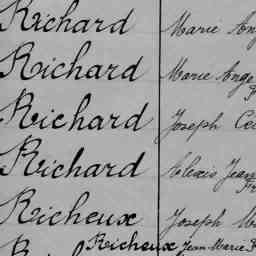 Richard Marie Ang
Richard Marie Ange
Richard Joseph
Richard Alexis Jean
Richeux Joseph
Richeux Jean-Marie